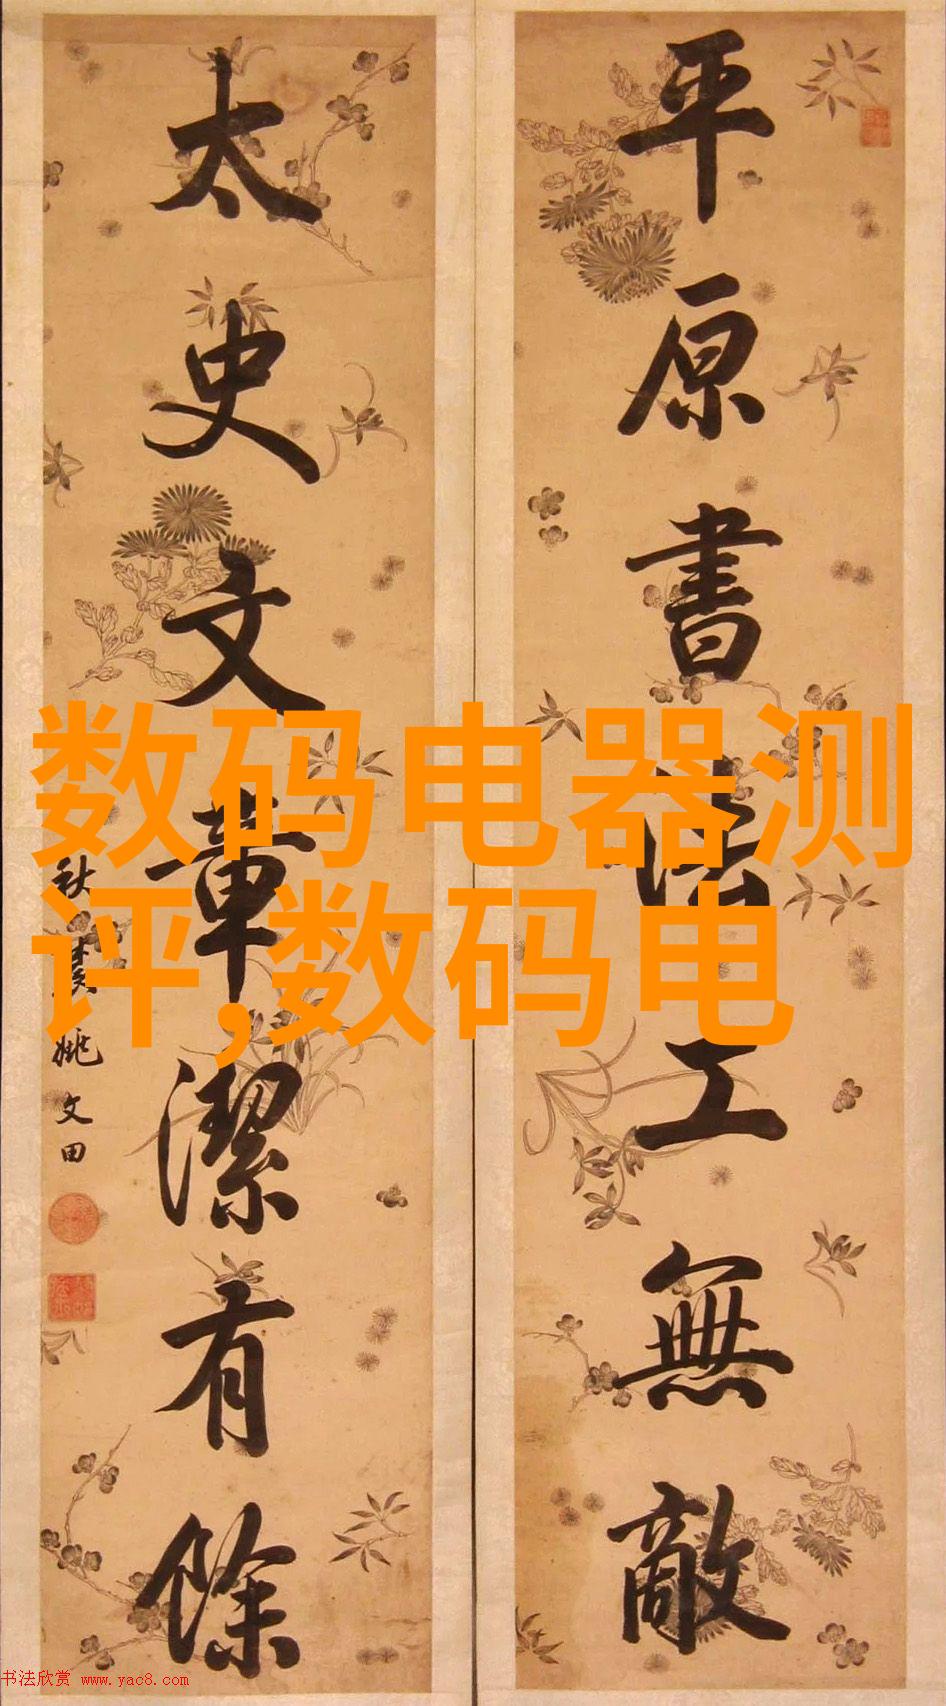 平原書法工無敵
太史文章潔有餘
秋農姚文田
数码电器测
评,数码电
书法欣赏 www.yac8.com